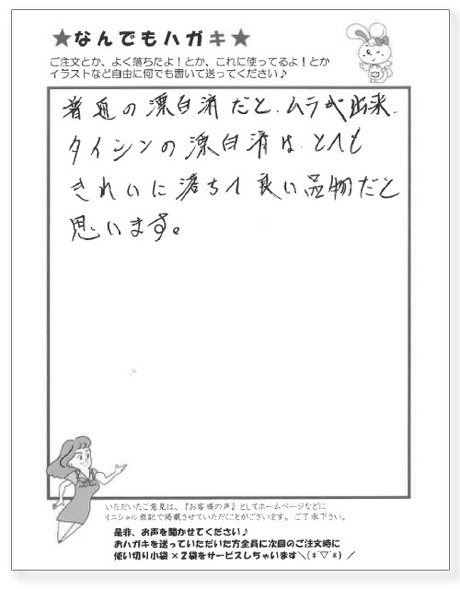 ★なんでもハガキ★
ご注文とか、よく落ちたよ！とか、これに使ってるよ！とか
イラストなど自由に何でも書いて送ってください♪
普通の漂白済だと、ムラが出来、
タイシンの漂白済は、とても
きれいに落ちて良い品物だと
思います。
いただいたご意見は、『お客様の声』としてホームページなどに
イニシャル表記で掲載させていただくことがございます。ご了承下さい。
是非、お声を聞かせてください♪
おハガキを送っていただいた方全員に次回のご注文時に
使い切り小袋×2袋をサービスしちゃいます＼(*ﾟ▽ﾟ*)／